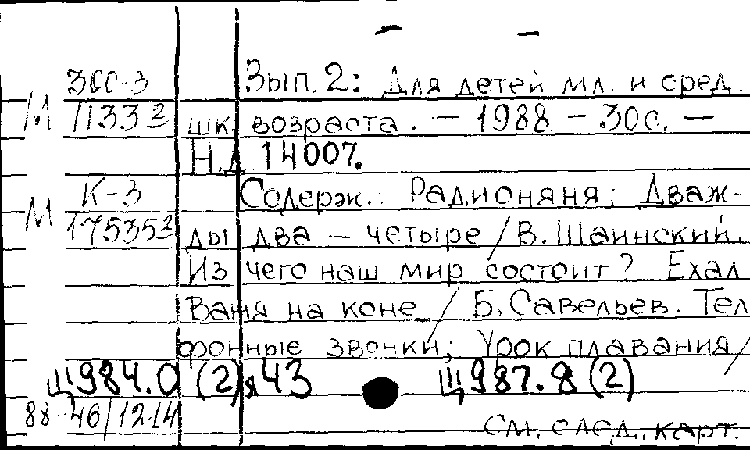 — —
300-3 Вып. 2: Для детей мл. и сред.
М 11332 шк. возраста. — 1988 — 30с. —
Н.Д 14007.
К-3 Содерж.: Радионяня; Дваж-
М 175353 ды два — четыре / В. Шаинский.
Из чего наш мир состоит? Ехал
Ваня на коне / Б. Савельев. Теле
фонные звонки; Урок плавания /
Щ984.0 (2)я43 Щ987.8 (2)
88-46/1214
См. след. карт.